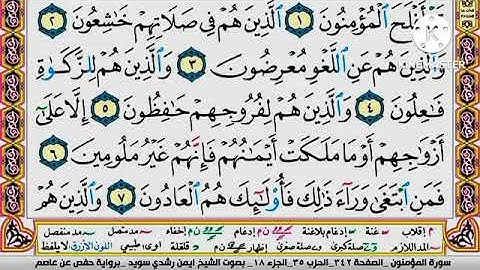 قَدْ أَفْلَحَ الْمُؤْمِنُونَ ١ الَّذِينَ هُمْ فِي صَلَاتِهِمْ خَاشِعُونَ ٢
وَالَّذِينَ هُمْ عَنِ اللَّغْوِ مُعْرِضُونَ ٣ وَالَّذِينَ هُمْ لِلزَّكَوٰةِ
فَاعِلُونَ ٤ وَالَّذِينَ هُمْ لِفُرُوجِهِمْ حَافِظُونَ ٥ إِلَّا عَلَىٰ
أَزْوَاجِهِمْ أَوْ مَا مَلَكَتْ أَيْمَانُهُمْ فَإِنَّهُمْ غَيْرُ مَلُومِينَ ٦
فَمَنِ ابْتَغَىٰ وَرَاءَ ذَٰلِكَ فَأُولَٰئِكَ هُمُ الْعَادُونَ ٧ وَالَّذِينَ هُمْ
م إقلاب غنة إدغام بلاغنة ن م إدغام ن م إخفاء مد متصل مد منفصل
المد اللازم صلة كبرى صلة صغرى إظهار ن م قلقلة طبيعي اللون الأزرق لا يلفظ
سورة المؤمنون _ الصفحة ٣٤٢_ الحزب ٣٥_ الجزء ١٨_ بصوت الشيخ ايمن رشدي سويد _برواية حفص عن عاصم